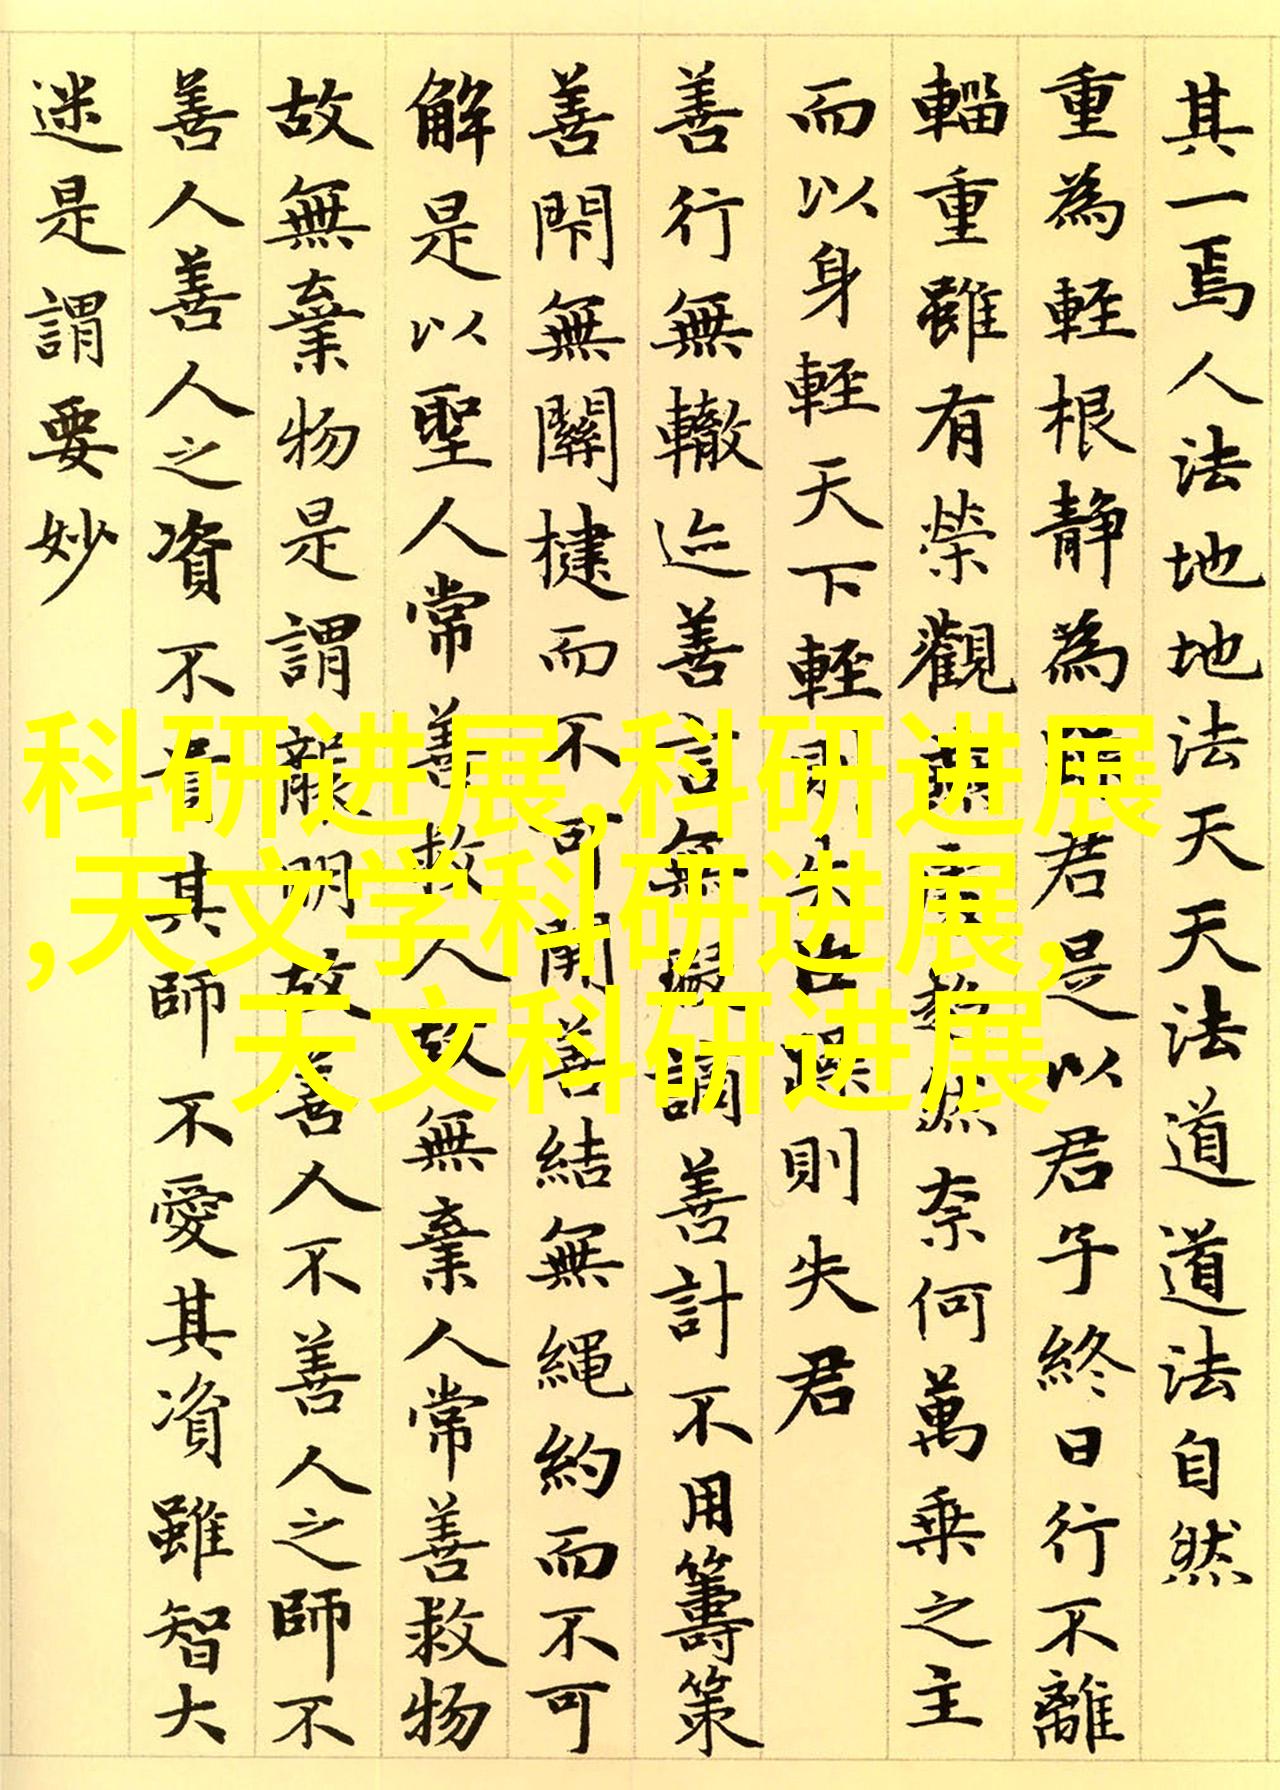 其一焉人法地地法天天法道道法自然
重為輕根静為君是以君子終日行不離
輜重雖有榮觀然奈何萬乗之主
而以身輕天下輕則失則失君
善行無轍迹善言無謫善計不用籌策
善閇無關揵而不可開善結無繩約而不可
解是以聖人常善救人故無棄人常善救物
故無棄物是謂明故善人不善人之師不
善人善人之資不其師不愛其資雖智大
迷是謂要妙
科研进展,科研进展
,天文学科研进展,
天文科研进展